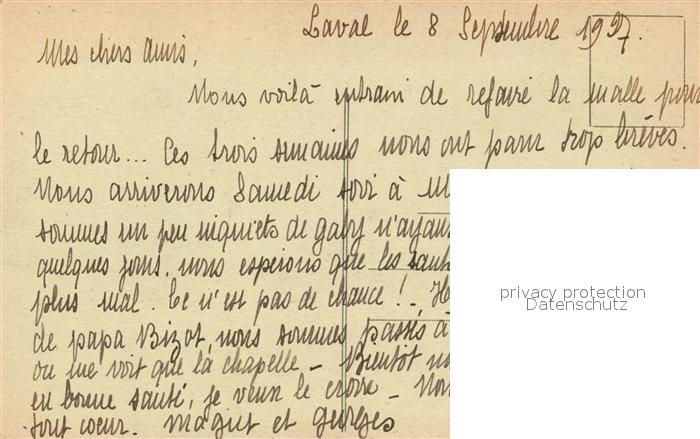 Laval le 8 Septembre 1937.
Mes chers amis,
Nous voilà entrain de refaire la malle pour
le retour... Ces trois semaines nous ont paru trop brèves.
Nous arriverons Samedi soir à
sommes un peu inquiets de Gaby n'ayant
quelques jours, nous espérons que les
plus mal. Ce n'est pas de chance! -
de papa Bizot, nous sommes passés à
on ne voit que la chapelle - Bientôt
en bonne santé, je veux le croire -
tout coeur. Magut et Georges
privacy protection
Datenschutz